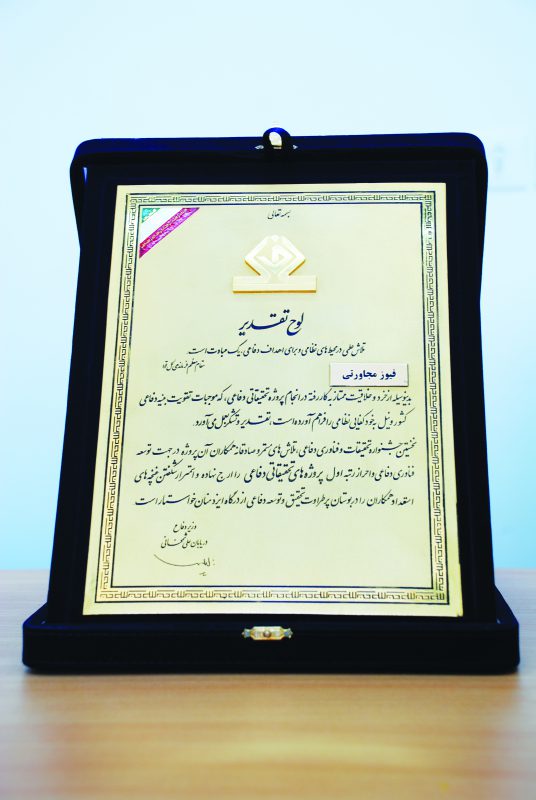 بسمه تعالی
لوح تقدیر
تلاش علمی در محیط های نظامی و برای اهداف دفاعی، یک عبادت است.
مقام معظم فرماندهی کل قوا
فیوز مجاورتی
بدینوسیله از خرد و خلاقیت ممتاز به کار رفته در انجام پروژه تحقیقاتی دفاعی، که موجبات تقویت بنیه دفاعی
کشور و نیل به خودکفایی نظامی را فراهم آورده است، تقدیر و تشکر بعمل می آورد.
نخستین جشنواره تحقیقات و فناوری دفاعی، تلاش های مستمر و صادقانه همکاران آن پروژه در جهت توسعه
فناوری دفاعی و احراز رتبه اول پروژه های تحقیقاتی دفاعی را ارج نهاده و استمرار شکفتن غنچه های
استعداد همکاران را در بوستان پرطراوت تحقیق و توسعه دفاعی از درگاه ایزد منان خواستار است
وزیر دفاع
دریابان علی شمخانی